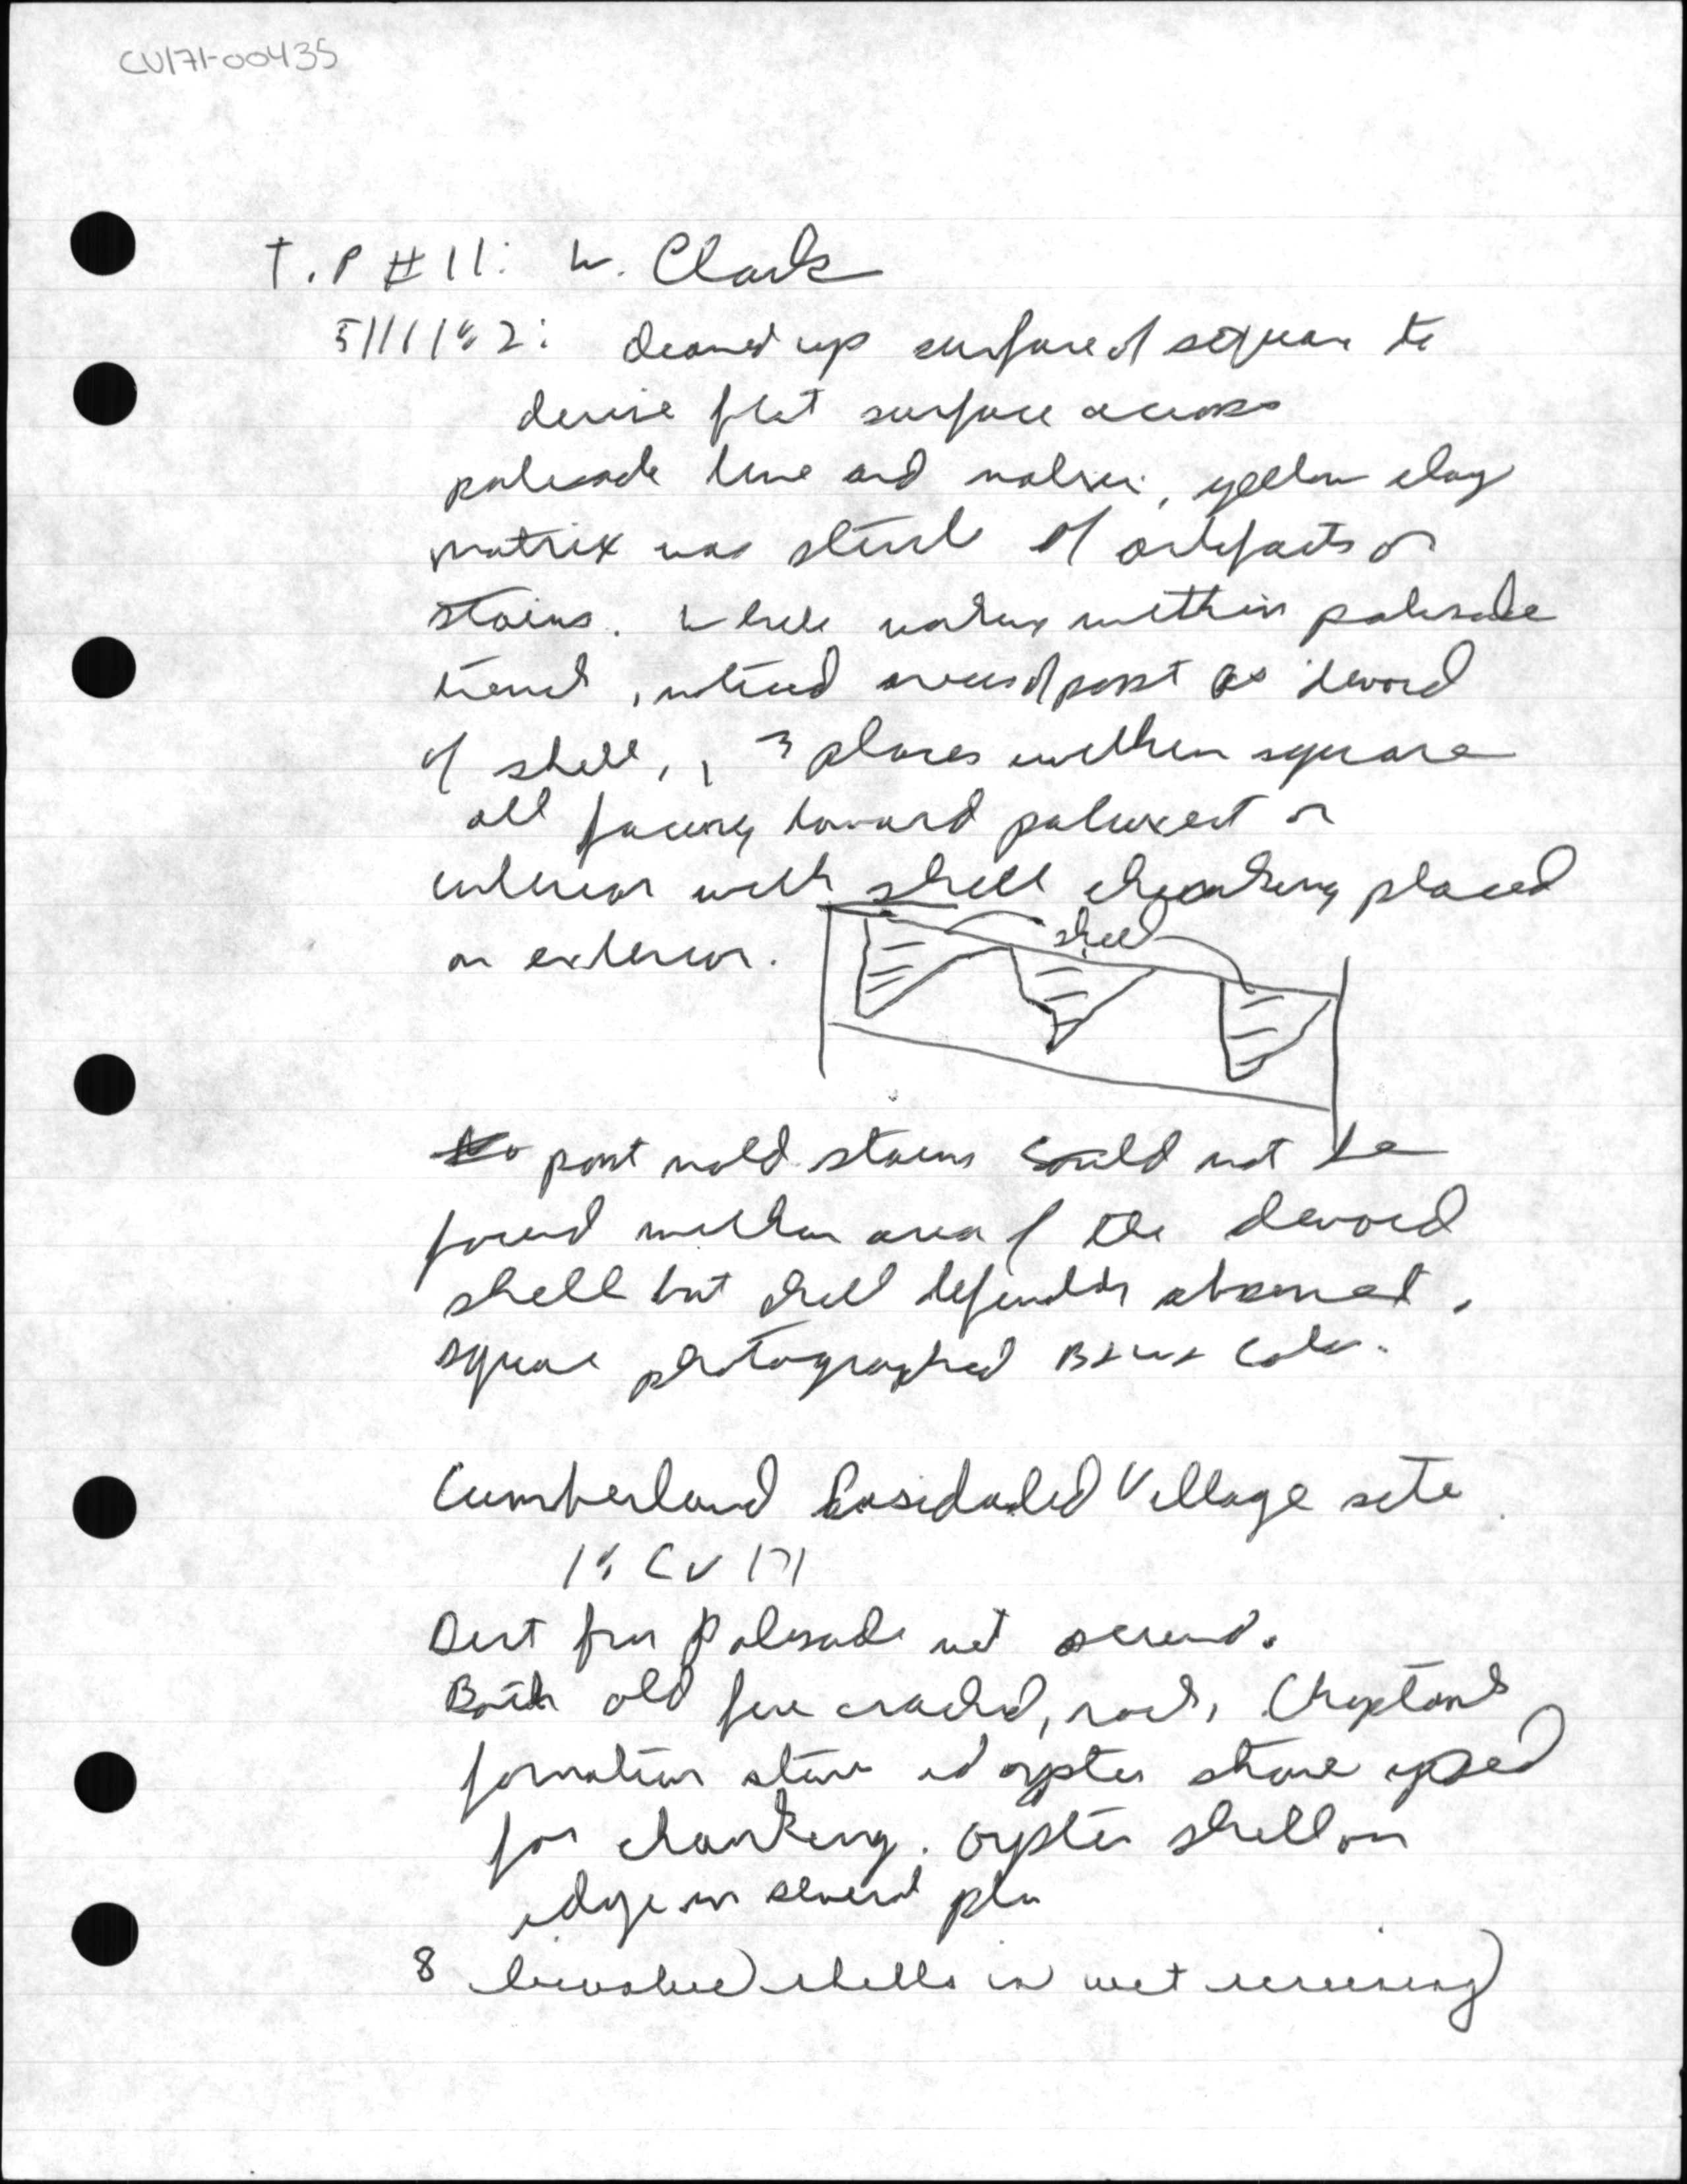 CV171-00435
T.P #11: W. Clark
cleaned up surface of square to
flat surface across
palisade line and yellow clay
matrix was of artifacts or
stains. within palisade
noticed areas of post as devoid
of shell, 3 places within square
all facing toward
interior with shell chunking placed
on exterior.
shell
post mold stains could not be
found within area of the devoid
shell but shell absent.
square photographed B&W & Color.
Cumberland Village site
18 CV 171
Dirt from Palisade wet screened.
Both old fire cracked, rock, Choptank
formation stone oyster used
for chunking. oyster shell on
edge in several
8 bivalve shells in wet screening